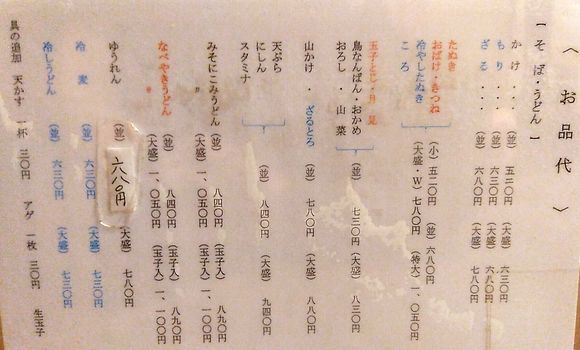 〈 お品代 〉
【 そば・うどん 】
かけ・・・ (並) 五二〇円 (大盛) 六三〇円
もり・・・ (並) 六三〇円 (大盛) 六八〇円
ざる・・・ (並) 六八〇円 (大盛) 七八〇円
たぬき
おばけ・きつね
冷やしたぬき
ころ
(小) 五二〇円 (並) 六八〇円
(大盛・W) 七八〇円 (特大) 一、〇五〇円
玉子とじ・月見
鳥なんばん・おかめ
おろし・山菜
(並) 七三〇円 (大盛) 八三〇円
山かけ・ざるとろ (並) 七八〇円 (大盛) 八八〇円
天ぷら
にしん
スタミナ
(並) 八四〇円 (大盛) 九四〇円
みそにこみうどん (並) 八四〇円 (玉子入) 八九〇円
〃 (大盛) 一、〇五〇円 (玉子入) 一、一〇〇円
なべやきうどん (並) 八四〇円 (玉子入) 八九〇円
〃 (大盛) 一、〇五〇円 (玉子入) 一、一〇〇円
ゆうれん (並) 六八〇円 (大盛) 七八〇円
冷麦 (並) 六三〇円 (大盛) 七三〇円
冷しうどん (並) 六三〇円 (大盛) 七三〇円
具の追加 天かす 一杯 三〇円 アゲ 一枚 三〇円 生玉子